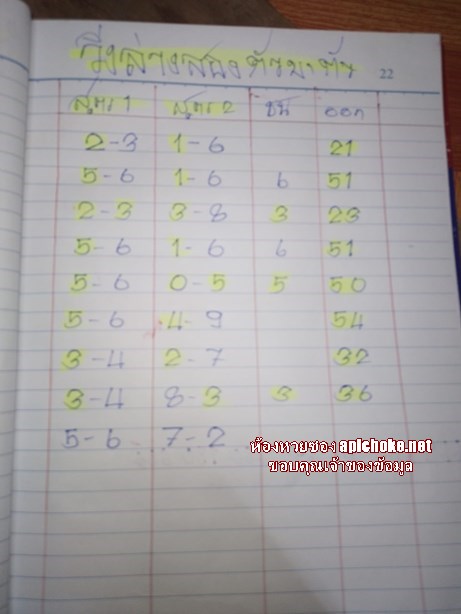 วิ่งล่างสองตัวบาทัน
22
สูตร 1 สูตร 2 ชน ออก
2-3 1-6 21
5-6 1-6 6 51
2-3 3-8 3 23
5-6 1-6 6 51
5-6 0-5 5 50
5-6 4-9 54
3-4 2-7 32
3-4 8-3 3 36
5-6 7-2
ห้องหวยซอง apichoke.net
ขอบคุณเจ้าของข้อมูล